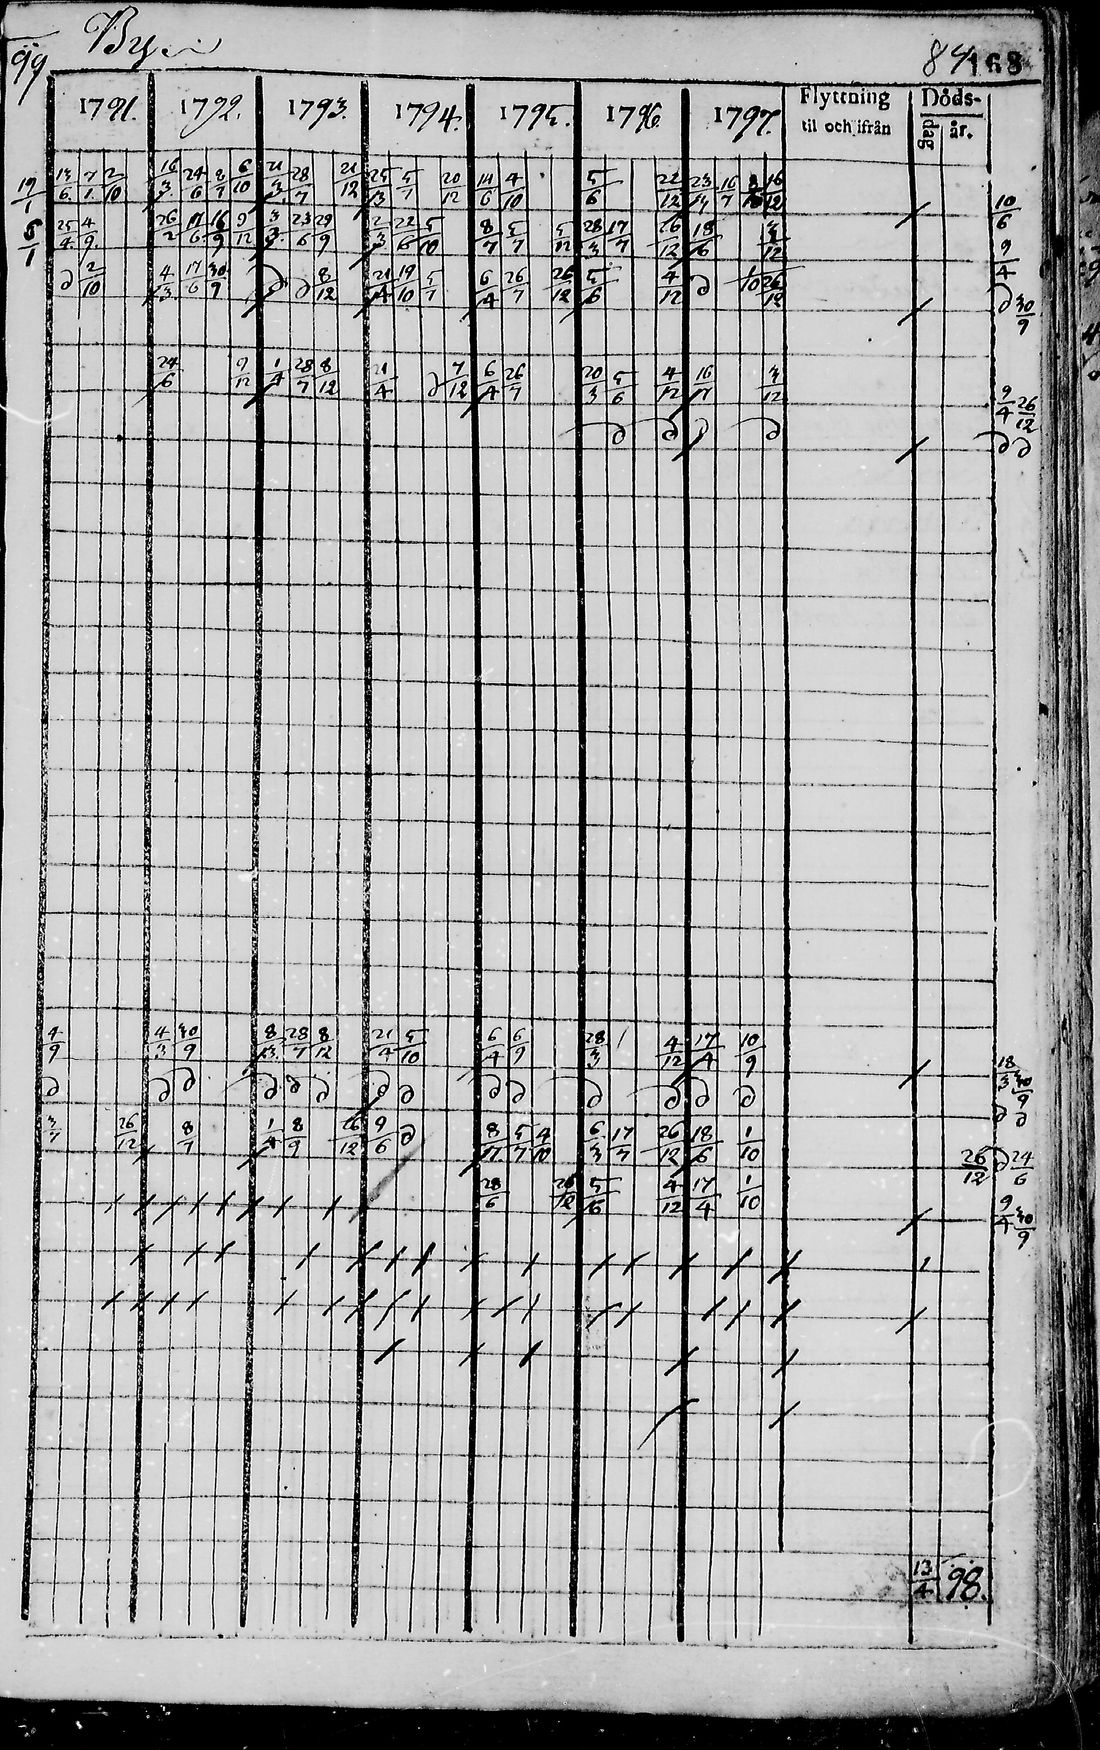 99 By 84 168
1791. 1792. 1793. 1794. 1795. 1796 1797. Flyttning til och ifrån Dödsdag år.
19/1 13/6 7/1 2/10 16/3 24/6 8/7 6/10 21/3 28/7 21/12 25/3 5/7 20/12 14/6 4/10 5/6 22/12 23/4 16/7 16/12 10/6
5/1 25/4 4/9 26/2 17/6 16/9 9/12 3/3 23/6 29/9 2/3 22/6 5/10 8/7 5/7 5/12 28/3 17/7 26/12 18/6 3/12 9/4
∂ 2/10 4/3 17/6 30/9 ∂ ∂ 8/12 21/4 19/10 5/7 6/4 26/7 26/12 5/6 4/12 ∂ 26/12 ∂ 30/9
24/6 9/12 1/4 28/7 8/12 21/4 ∂ 7/12 6/4 26/7 20/3 5/6 4/12 16/17 3/12 9/4 26/12
∂ ∂ ∂ ∂ ∂ ∂
4/9 4/3 30/9 8/3 28/7 8/12 21/4 5/10 6/4 6/9 28/3 4/12 17/4 10/9 18/3 30/9
∂ ∂ ∂ ∂ ∂ ∂ ∂ ∂ ∂ ∂ ∂ ∂ ∂ ∂ ∂ ∂
3/7 26/12 8/7 1/4 8/9 26/12 9/6 ∂ 8/11 5/7 4/10 6/3 17/7 26/12 18/6 1/10 26/12 ∂ 24/6
28/6 26/12 5/6 4/12 17/4 1/10 9/4 30/9
13/4 98.